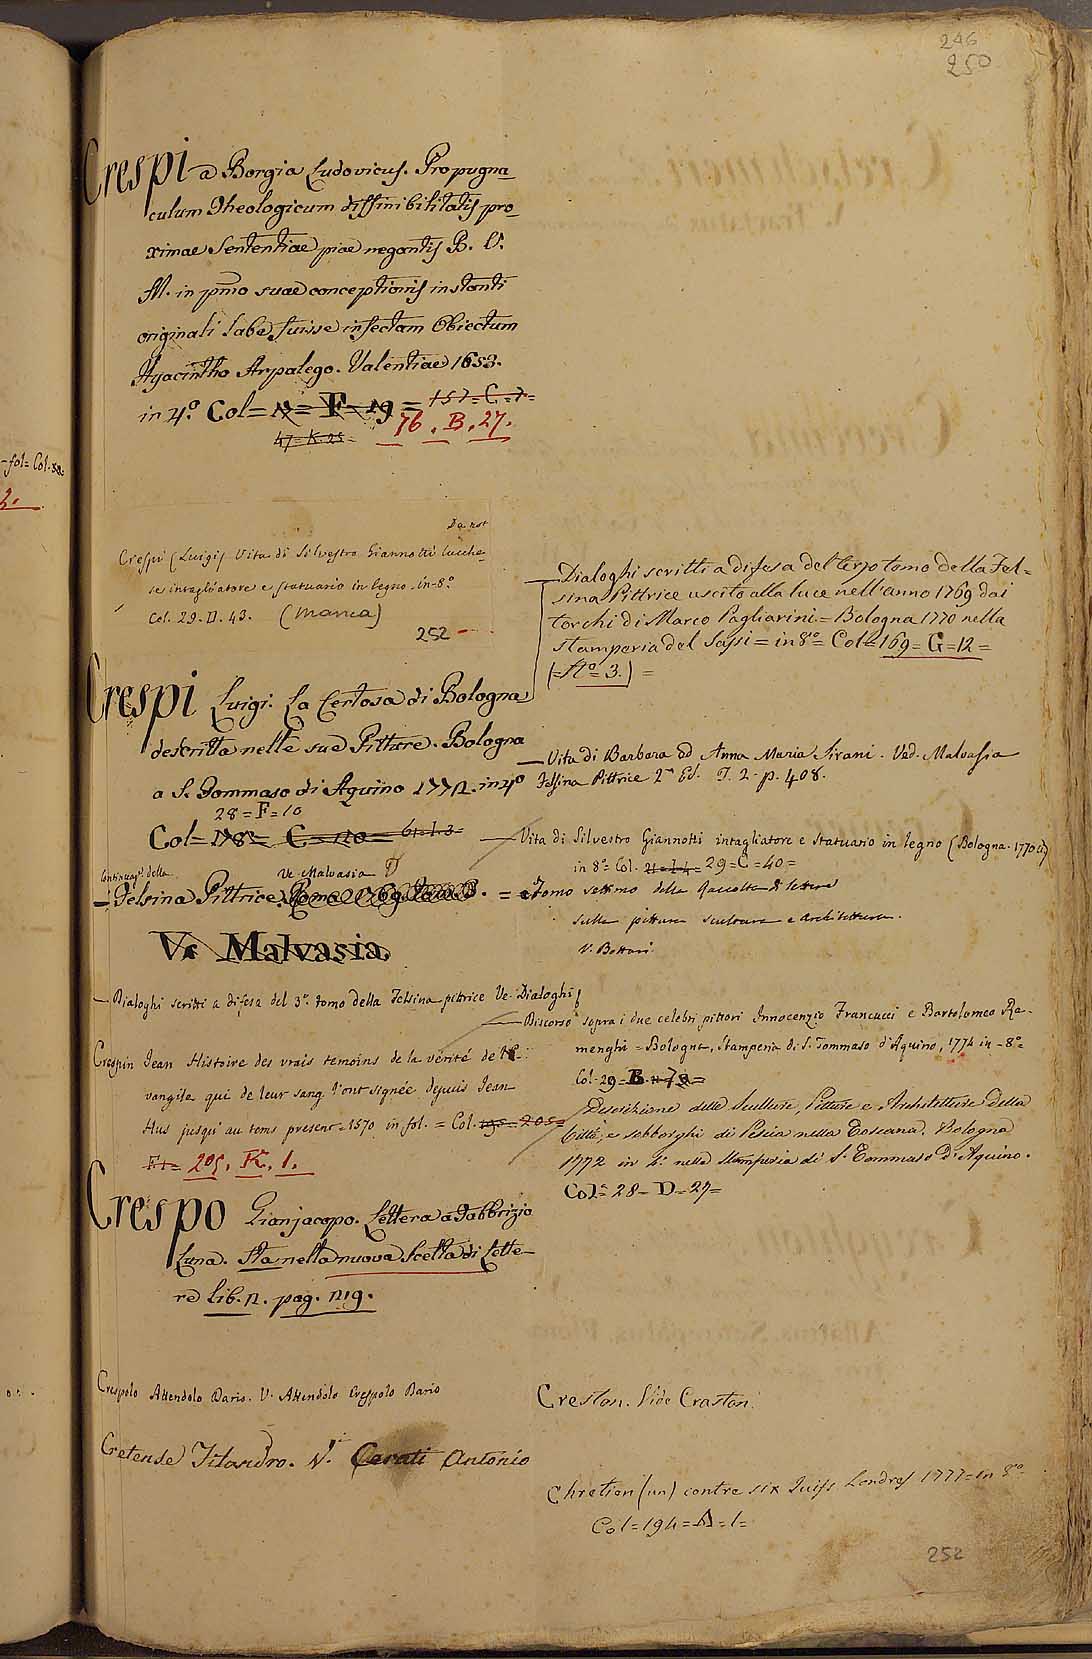 246
250
Crespi a Borgia Ludovicus. Propugna
culum Theologicum diffinibilitatis pro-
ximae Sententiae piae negantis B. V.
M. in pmo suae conceptionis instanti
originali labe fuisse infectam Obiectum
Hyacintho Arpalego. Valentiae 1653.
in 4.º Col = 12 = F = 19 = 157 = C = 7 =
76. B. 27.
47 = K. 25 =
fol = Col. 80 =
2.
Crespi (Luigi) Vita di Silvestro Giannotti lucche-
se intagliatore e statuario in legno. in-8.º
Col. 29. D. 43. (Manca)
252
Crespi Luigi. La Certosa di Bologna
descritta nelle sue Pitture. Bologna
a S. Tommaso di Aquino 1772. in 4º
28 = F = 10
Col = 178 = C = 120 = 61 = I. 3 =
Continuaz.e della Ve Malvasia
— Felsina Pittrice. Roma 1769. Tom
Ve Malvasia.
— Dialoghi scritti a difesa del 3.º tomo della Felsina pittrice Ve. Dialoghi
Crespin Jean Histoire des vrais temoins de la verité de l'E-
vangile qui de leur sang l'ont signée depuis Jean
Hus jusqu'au tems present = 1570 in fol. = Col. 195 = 205 =
205. K. 1.
Crespo Gianjacopo. Lettera a Fabbrizio
Luna. Sta nella nuova Scelta di Lette-
re lib. 2. pag. 219.
Crespolo Attendolo Dario. V. Attendolo Crespolo Dario
Cretense Tilandro. V. Cerati Antonio
— Dialoghi scritti a difesa del terzo tomo della Fel=
sina Pittrice uscito alla luce nell'anno 1769 dai
torchi di Marco Pagliarini = Bologna 1770 nella
stamperia del Sassi = in 8º = Col = 169 = G = 12 =
(= Nº = 3.) =
— Vita di Barbara ed Anna Maria Sirani. Ved. Malvasia
Felsina Pittrice 2a Ed. T. 2. p. 408.
— Vita di Silvestro Giannotti intagliatore e statuario in legno (Bologna. 1770
in 8º Col. 29 = C = 40 =
= Tomo settimo della Raccolta di lettere
sulla pittura scultura e Architettura.
V. Bottari
— Discorso sopra i due celebri pittori Innocenzio Francucci e Bartolomeo Ra-
menghi = Bologna, Stamperia di S. Tommaso d'Aquino, 1774 in - 8º =
Col. 29 = B
Descrizione delle Sculture, Pitture e Architetture della
Città, e sobborghi di Pescia nella Toscana. Bologna
1772 in 4.º nella Stamperia di S. Tommaso d'Aquino.
Col = 28 = D = 27 =
Creston. Vide Craston.
Chretien (un) contre six Juifs Londres 1777 = in 8º
Col = 194 = A = 1 =
252